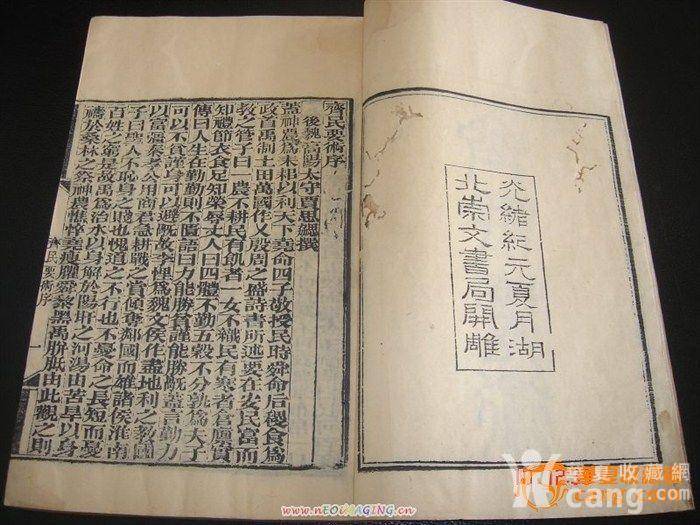 光緒紀元夏月湖
北崇文書局開雕
齊民要術序
後魏高陽太守賈思勰撰
蓋神農爲耒耜以利天下堯命四子敬授民時舜命后稷食爲
政首禹制土田萬國作乂殷周之盛詩書所述要在安民富而
教之管子曰一農不耕民有飢者一女不織民有寒者倉廩實
知禮節衣食足知榮辱丈人曰四體不勤五穀不分孰爲夫子
傳曰人生在勤勤則不匱語曰力能勝貧謹能勝禍蓋言勤力
可以不貧謹身可以避禍故李悝爲魏文侯作盡地利之教國
以富彊秦孝公用商君急耕戰之賞傾奪鄰國而雄諸侯淮南
子曰聖人不恥身之賤也愧道之不行也不憂命之長短而憂
百姓之窮是故禹爲治水以身解於陽盱之河湯由苦旱以身
禱於桑林之祭神農憔悴堯瘦癯舜黎黑禹胼胝由此觀之則
齊民要術序
一
华夏收藏网
cang.com
www.nEOIMAGING.cn